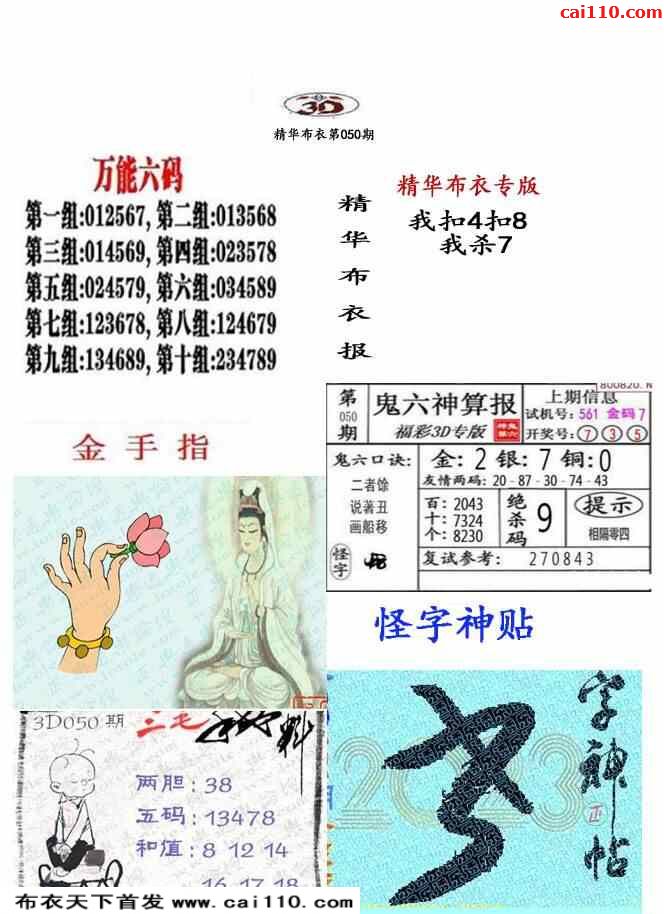 cai110.com
3D
精华布衣第050期
万能六码
第一组:012567, 第二组:013568
第三组:014569, 第四组:023578
第五组:024579, 第六组:034589
第七组:123678, 第八组:124679
第九组:134689, 第十组:234789
精华布衣报
精华布衣专版
我扣4扣8
我杀7
金手指
第050期
鬼六神算报
福彩3D专版
上期信息
试机号: 561 金码 7
开奖号: 7 3 5
鬼六口诀:
二者馀
说著丑
画船移
怪字
金: 2 银: 7 铜: 0
友情两码: 20-87-30-74-43
百: 2043
十: 7324
个: 8230
绝杀码 9
提示
相隔零四
复试参考: 270843
怪字神贴
3D050期
三毛
两胆: 38
五码: 13478
和值: 8 12 14
16 17 18
2023
字神帖
布衣天下首发 www.cai110.com